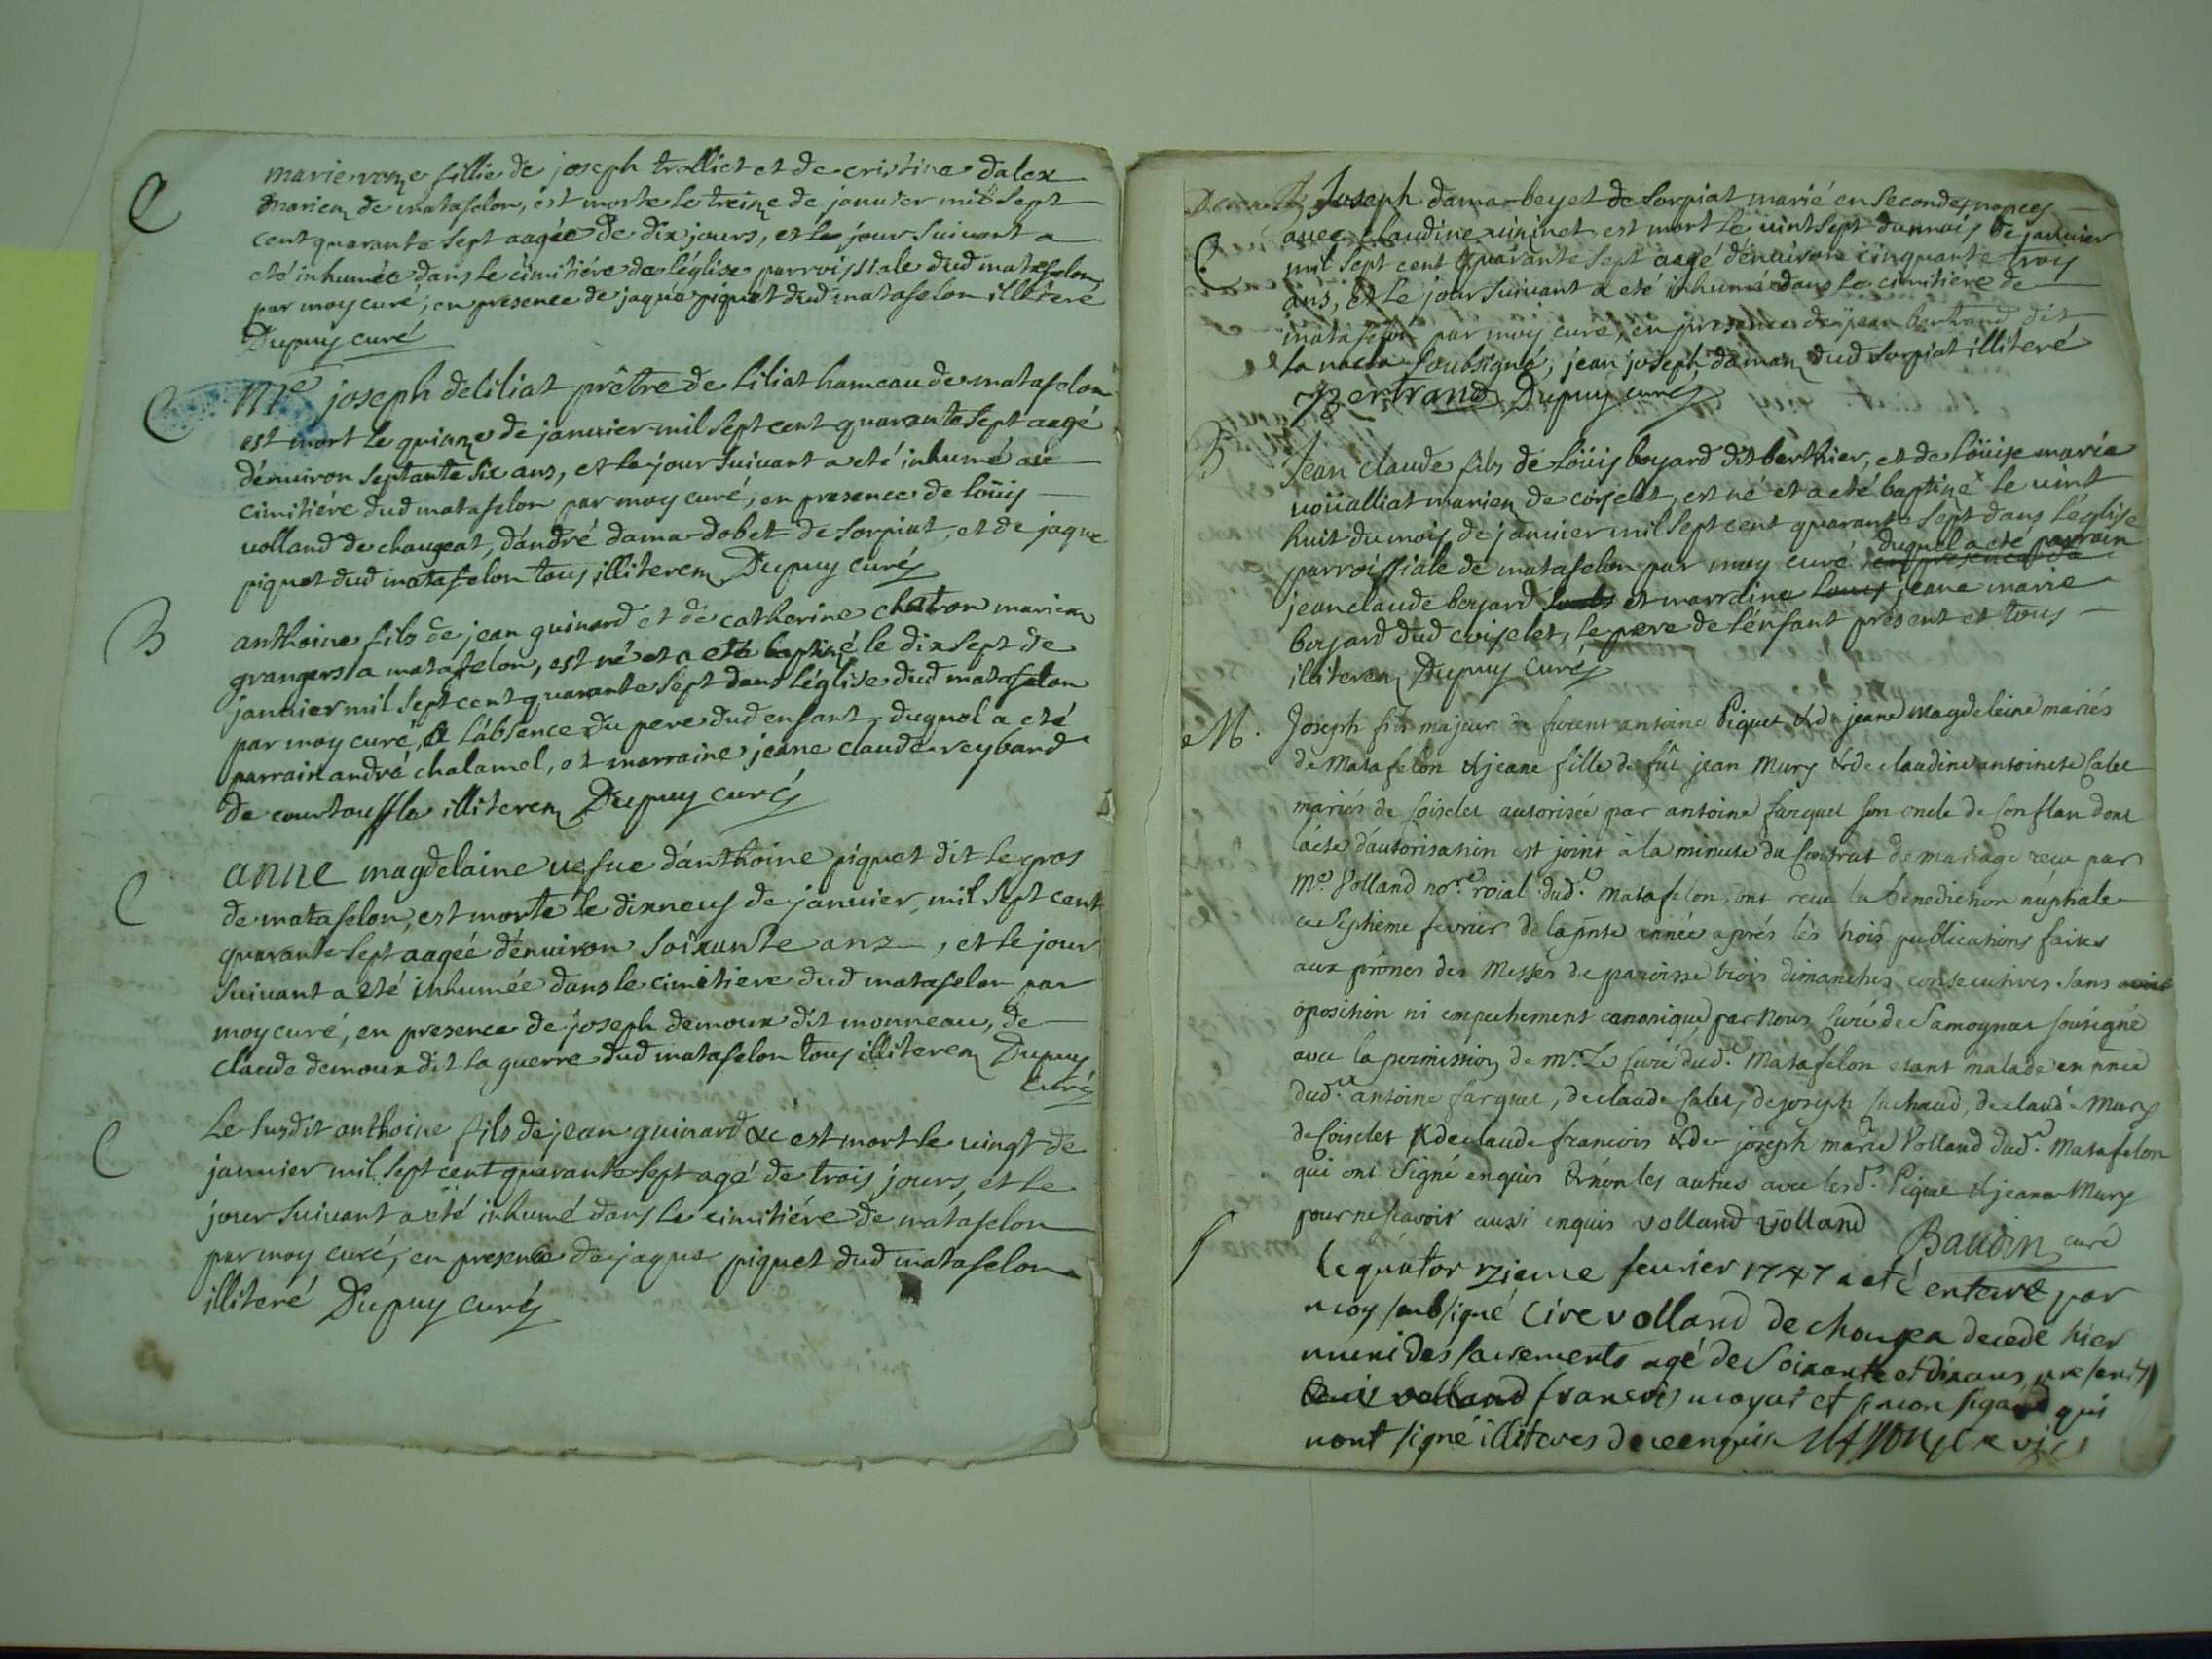 C
marie fillie de joseph trolliet et de cristine dalex
mariez de matafelon, est morte le treize de januier mil sept
cent quarante sept aagée de dix jours, et le jour suiuant a
eté inhumée dans le cimitiére de léglise parroissiale dud matafelon
par moy curé, en presence de jaque piquet dud matafelon illiteré
Dupuy curé
C
Me joseph deliliat prêtre de liliat hameau de matafelon
est mort le quinze de januier mil sept cent quarante sept aagé
dénuiron septante six ans, et le jour suiuant a eté inhumé au
cimitiére dud matafelon par moy curé, en presence de loüis
uolland de chaugeat, dándré dama-dobet de sorpiat, et de jaque
piquet dud matafelon tous illiterez Dupuy curé
B
anthoine fils de jean guinard et de catherine chatron mariez
grangers a matafelon, est né et a eté baptizé le dix sept de
januier mil sept cent quarante sept dans léglise dud matafelon
par moy curé, a lábsence du pere dud enfant, duquel a eté
parrain andré chalamel, et marraine jeane claude reybard
de courtouffle illiterez Dupuy curé
C
anne magdelaine uefue dánthoine piquet dit le gros
de matafelon, est morte le dixneuf de januier mil sept cent
quarante sept aagéé dénuiron soixante anz, et le jour
suiuant a eté inhumée dans le cimitiere dud matafelon par
moy curé, en presence de joseph demoux dit monneau, de
claude demoux dit la guerre dud matafelon tous illiterez Dupuy
curé
C
Le susdit anthoine fils de jean guinard &c est mort le uingt de
januier mil sept cent quarante sept agé de trois jours, et le
jour suiuant a eté inhumé dans le cimitiére de matafelon
par moy curé, en presence de jaque piquet dud matafelon
illiteré Dupuy curé
C
Joseph dama-beyet de sorpiat marié en secondes nopces
auec claudine est mort le uint sept du mois de januier
mil sept cent quarante sept aagé dénuiron cinquante troy
ans, et le jour suiuant a eté inhumé dans le cimitiere de
matafelon par moy curé, en presence de jean bertrand dit
la soubsigné, jean joseph damaz dud sorpiat illiteré
Bertrand Dupuy curé
B
Jean claude fils de loüis boyard dit berthier, et de loüise marie
uoüalliat mariez de coiselet, est né et a eté baptizé le uint
huit du mois de januier mil sept cent quarante sept dans léglise
parroissiale de matafelon par moy curé duquel a eté parrain
jean claude boyard et marraine jeane marie
boyard dud coiselet, le pere de lénfant présent et tous
illiterez Dupuy curé
M.
Joseph fils majeur de furent antoine Piquet & de jeane magdeleine mariés
de Matafelon & jeane fille de fût jean Mury & de claudine antoinete Calet
mariés de Coiselet autorisée par antoine farquet son oncle de Conflan dont
lácte dáutorisation est joint à la minute du Contrat de mariage recu par
Me. Volland nore. roial dud. Matafelon, ont recu la benediction nuptiale
ce septieme fevrier de la pnte année aprés lès trois publications faites
aux prônes des Messes de paroisse trois dimanches consecutives sans
oposition ni empechement canonique par Nous Curé de Samognat sousigné
avec la permission de Mr. Le Curé dud. Matafelon etant malade en pnce
dud. antoine farquet, de claude Calet, de joseph Cuchaud, de claude Mury
de Coiselet & de claude francois & de joseph marie Volland dud. Matafelon
qui ont signé enquis & non les autres avec lesd. Piquet & jeane Mury
pour ne scavoir aussi enquis volland volland Baudin curé
le quator zieme feurier 1747 a eté enterré par
moy soubsigné Cire volland de decedé hier
muni des sacrements agé de soixante et dix ans presents
francois moyat et simon qui
nont signé illiteres de ce enquis